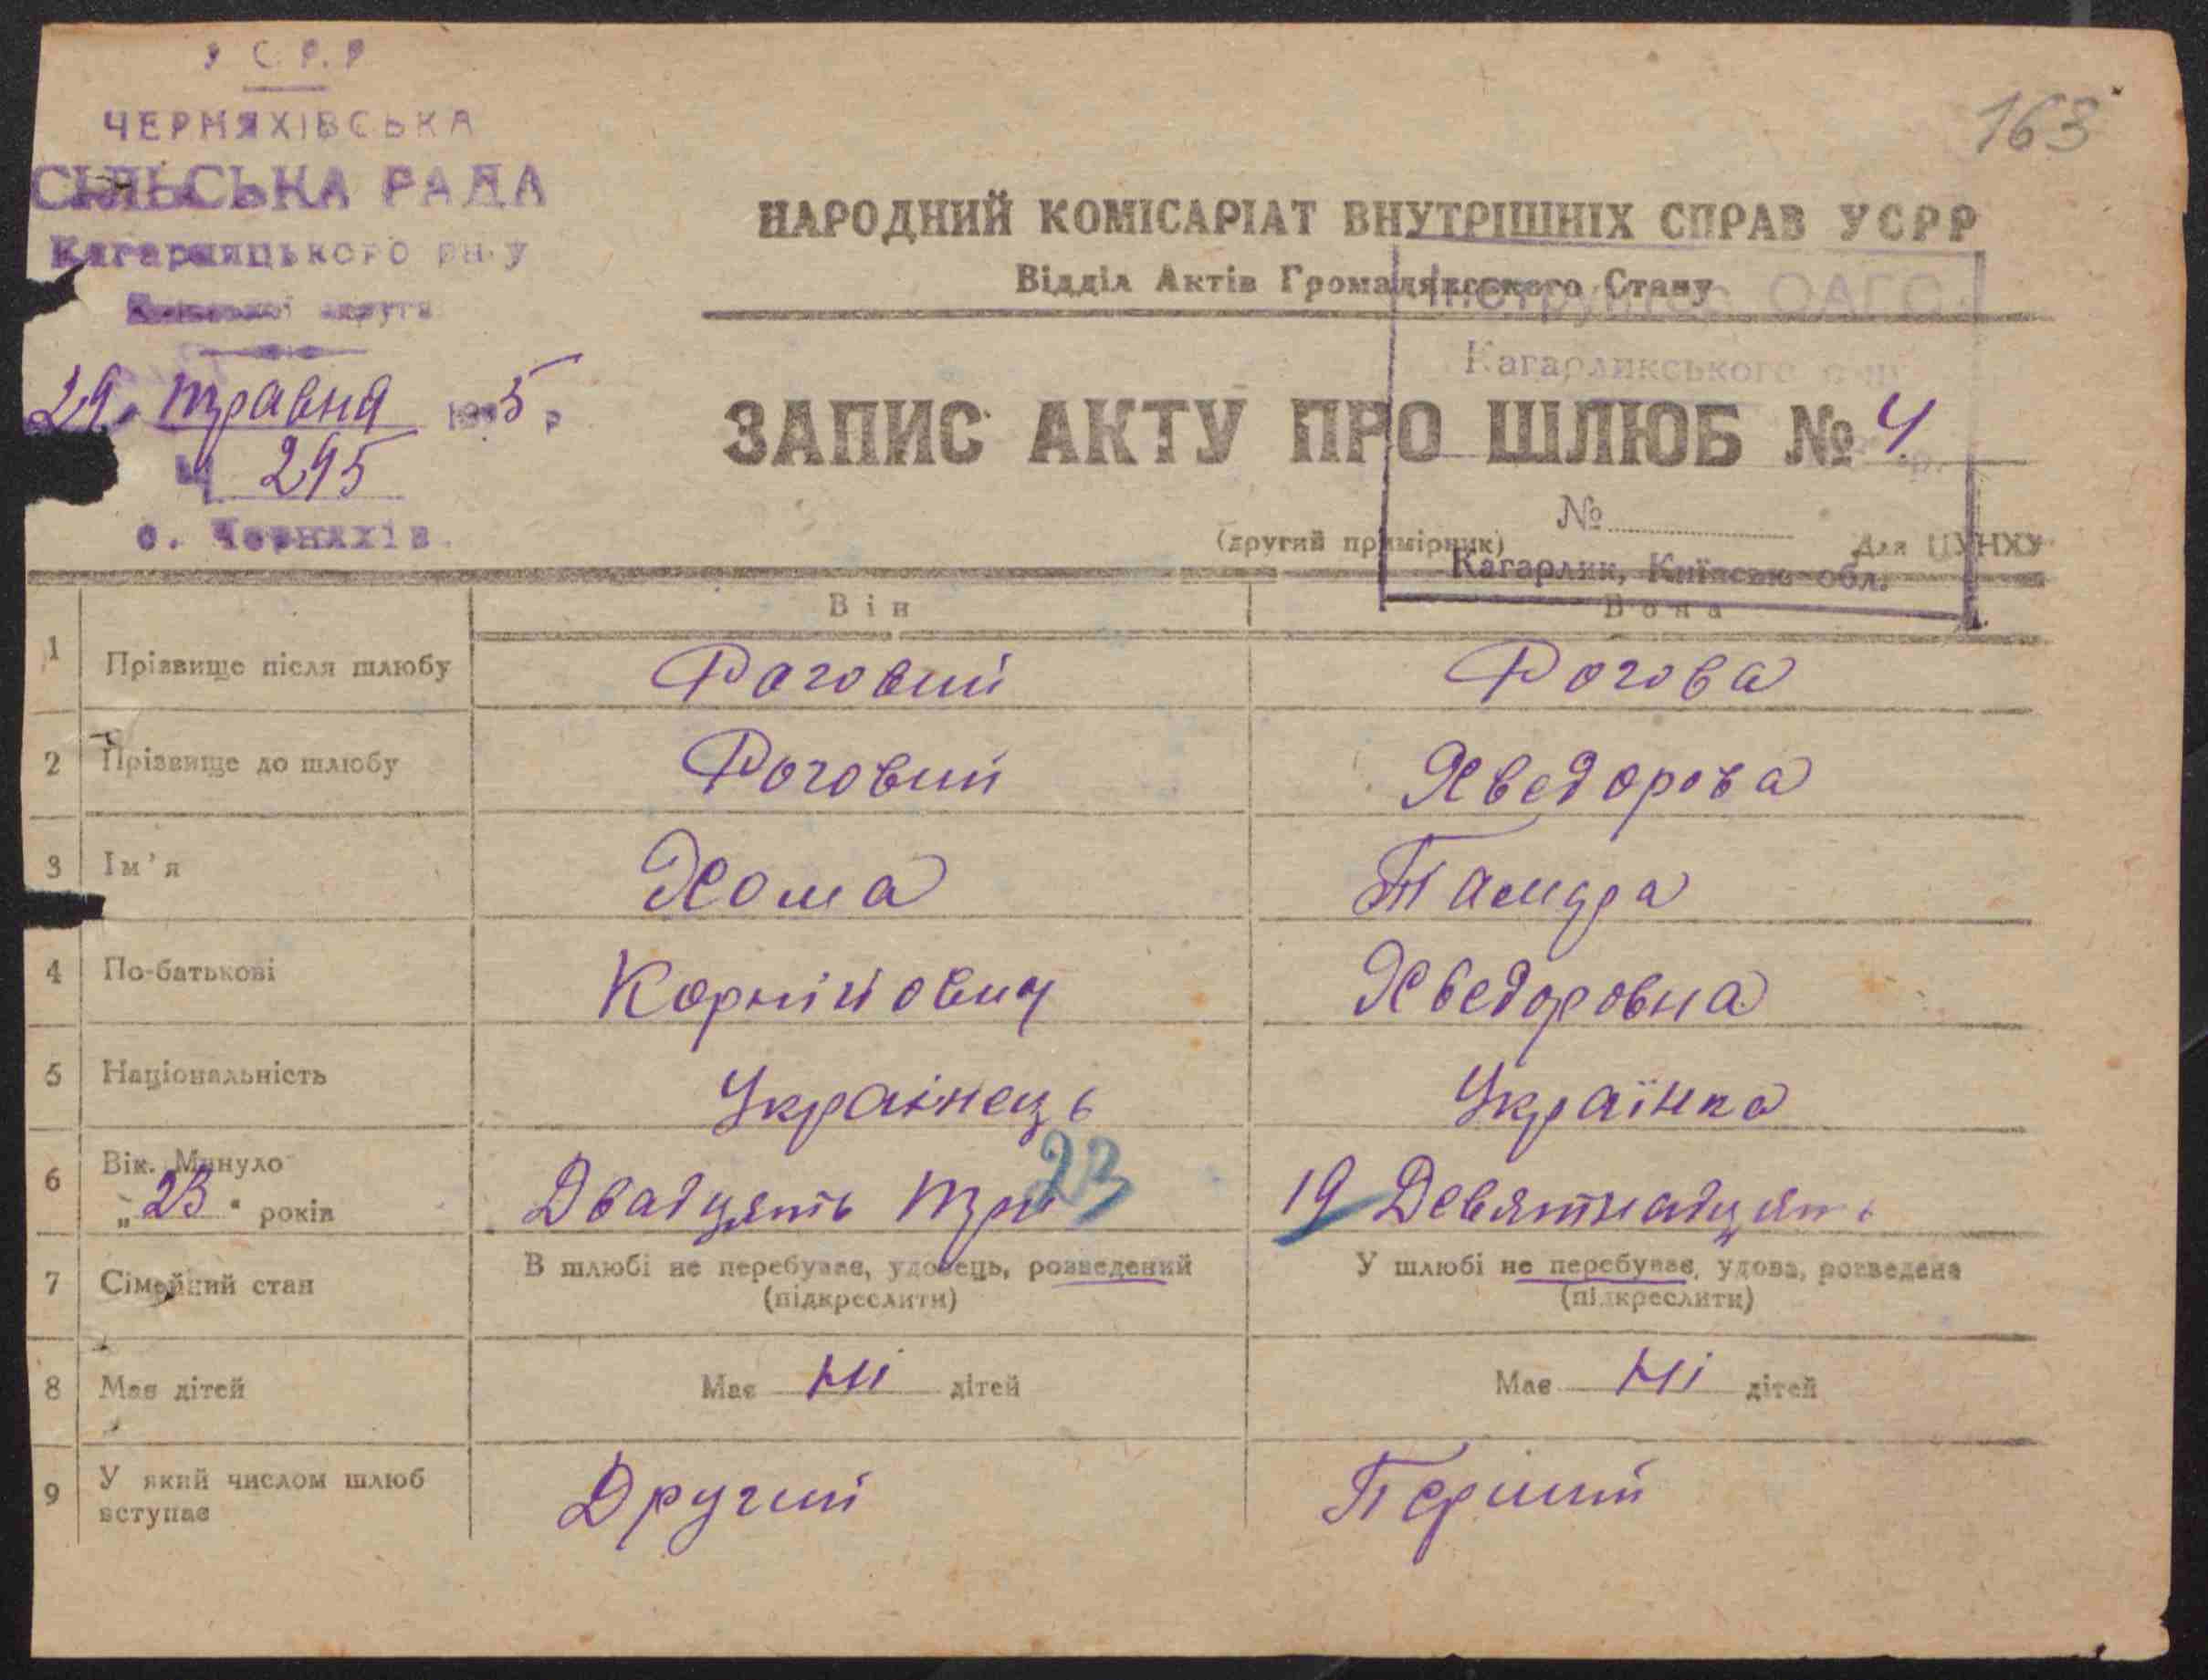 У С Р Р
ЧЕРНЯХІВСЬКА
СІЛЬСЬКА РАДА
Кагарлицького р-ну
29. травня 1935 р
Ч 295
с. Черняхів.
163
НАРОДНИЙ КОМІСАРІАТ ВНУТРІШНІХ СПРАВ УСРР
Відділ Актів Громадянського Стану
Інструктор ОАГС
Кагарликського
ЗАПИС АКТУ ПРО ШЛЮБ № 4
№
(другий примірник) Для ЦУНХУ
Кагарлик, Київськ. обл.
Він Вона
1 Прізвище після шлюбу Роговий Рогова
2 Прізвище до шлюбу Роговий Хведорова
3 Ім'я Хома Тамара
4 По-батькові Корнійович Хведоровна
5 Національність Украінець Українка
6 Вік. Минуло „23“ років Двадцять три 23 19 Девятнадцять
7 Сімейний стан В шлюбі не перебуває, удовець, розведений У шлюбі не перебуває, удова, розведена
(підкреслити) (підкреслити)
8 Має дітей Має ні дітей Має ні дітей
9 У який числом шлюб Другий Перший
вступає